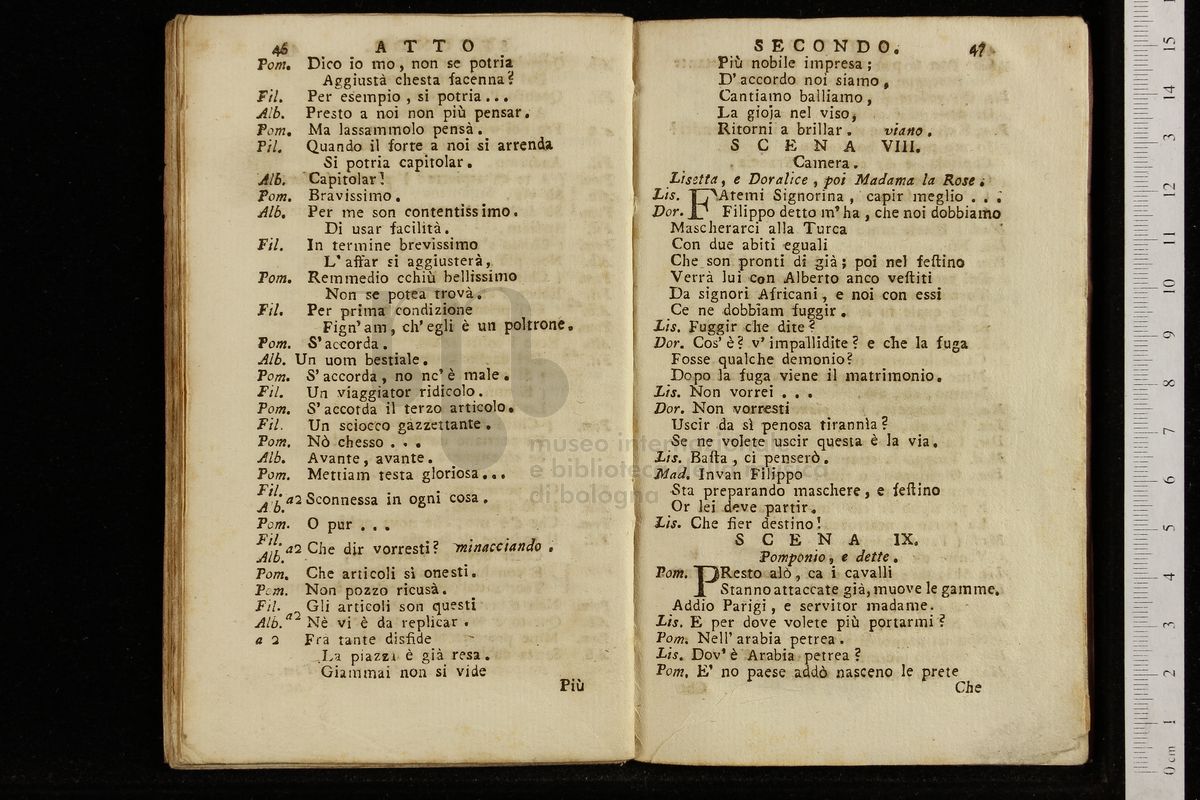 46 ATTO
Pom. Dico io mo, non se potria
Aggiustà chesta facenna?
Fil. Per esempio, si potria...
Alb. Presto a noi non più pensar.
Pom. Ma lassammolo pensà.
Pil. Quando il forte a noi si arrenda
Si potria capitolar.
Alb. Capitolar!
Pom. Bravissimo.
Alb. Per me son contentissimo.
Di usar facilità.
Fil. In termine brevissimo
L'affar si aggiusterà,
Pom. Remmedio cchiù bellissimo
Non se potea trovà.
Fil. Per prima condizione
Fign'am, ch'egli è un poltrone.
Pom. S'accorda.
Alb. Un uom bestiale.
Pom. S'accorda, no nc'è male.
Fil. Un viaggiator ridicolo.
Pom. S'accorda il terzo articolo.
Fil. Un sciocco gazzettante.
Pom. Nò chesso...
Alb. Avante, avante.
Pom. Mettiam testa gloriosa...
Fil.
Alb. a2 Sconnessa in ogni cosa.
Pom. O pur...
Fil.
Alb. a2 Che dir vorresti? minacciando.
Pom. Che articoli sì onesti.
Pom. Non pozzo ricusà.
Fil. Gli articoli son questi
Alb. a2 Nè vi è da replicar.
a 2 Fra tante disfide
La piazza è già resa.
Giammai non si vide
Più
SECONDO. 47
Più nobile impresa;
D'accordo noi siamo,
Cantiamo balliamo,
La gioja nel viso,
Ritorni a brillar. viano.
SCENA VIII.
Camera.
Lisetta, e Doralice, poi Madama la Rose.
Lis. FAtemi Signorina, capir meglio...
Dor. Filippo detto m'ha, che noi dobbiamo
Mascherarci alla Turca
Con due abiti eguali
Che son pronti di già; poi nel festino
Verrà lui con Alberto anco vestiti
Da signori Africani, e noi con essi
Ce ne dobbiam fuggir.
Lis. Fuggir che dite?
Dor. Cos'è? v'impallidite? e che la fuga
Fosse qualche demonio?
Dopo la fuga viene il matrimonio.
Lis. Non vorrei...
Dor. Non vorresti
Uscir da sì penosa tirannìa?
Se ne volete uscir questa è la via.
Lis. Basta, ci penserò.
Mad. Invan Filippo
Sta preparando maschere, e festino
Or lei deve partir.
Lis. Che fier destino!
SCENA IX.
Pomponio, e dette.
Pom. PResto alò, ca i cavalli
Stanno attaccate già, muove le gamme.
Addio Parigi, e servitor madame.
Lis. E per dove volete più portarmi?
Pom. Nell'arabia petrea.
Lis. Dov'è Arabia petrea?
Pom. E' no paese addò nasceno le prete
Che
museo internazionale
e biblioteca della musica
di bologna
0 cm 1 2 3 4 5 6 7 8 9 10 11 12 13 14 15